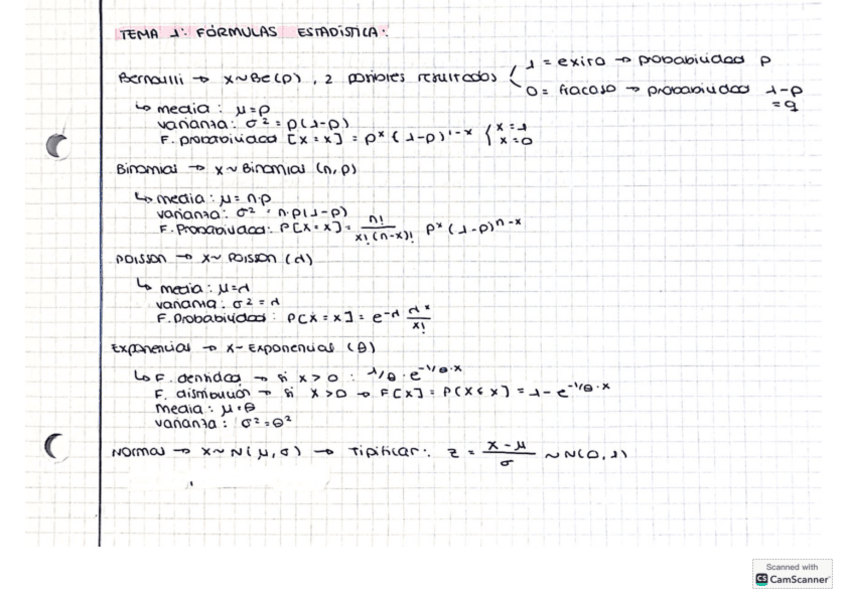 TEMA 1: FÓRMULAS ESTADÍSTICA:
Bernoulli → X~Be(p), 2 posibles resultados
1 = exito → probabilidad p
0 = fracaso → probabilidad 1-p
= q
↳ media: μ=p
varianza: σ² = p(1-p)
F. probabilidad [X = x] = pˣ (1-p)¹⁻ˣ { x = 1
x = 0
Binomial → X ~ Binomial (n, p)
↳ media: μ = n·p
varianza: σ² = n·p(1-p)
F. Probabilidad: P[X = x] = n! / x!(n-x)! pˣ (1-p)ⁿ⁻ˣ
POISSON → X ~ POISSON (λ)
↳ media: μ=λ
varianza: σ² = λ
F. Probabilidad: P[X = x] = e^-λ λˣ / x!
Exponencial → X ~ Exponencial (θ)
↳ F. densidad → si x > 0 : 1/θ · e^-1/θ·x
F. distribución → si X > 0 → F[x] = P(X ≤ x] = 1 - e^-1/θ·x
media: μ = θ
varianza: σ² = θ²
Normal → X ~ N(μ, σ) → Tipificar: Z = X - μ / σ ~ N(0, 1)
Scanned with
CS CamScanner